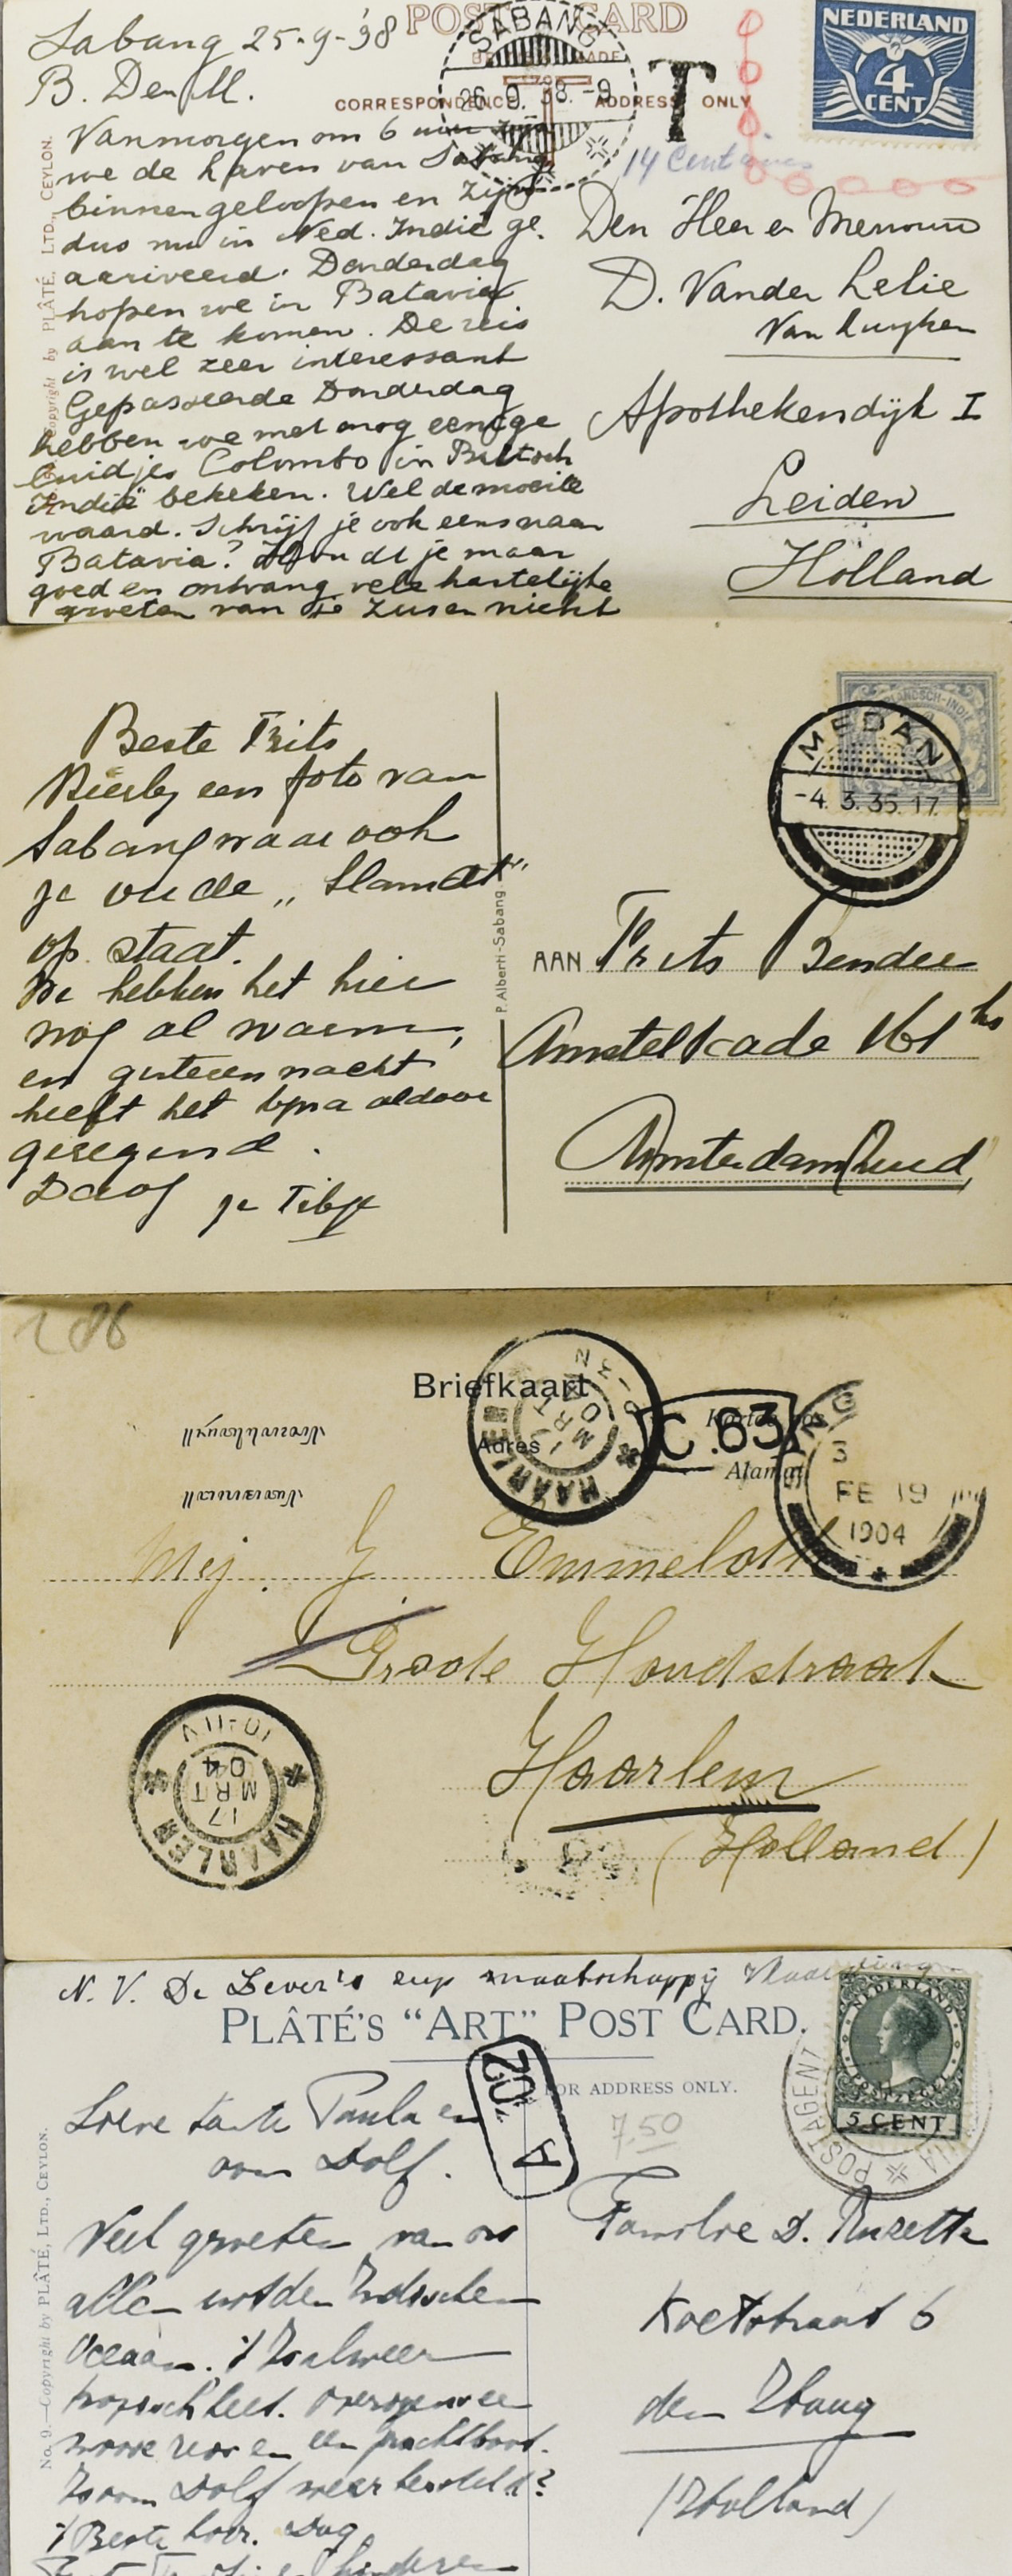 POST CARD
Sabang 25-9-'38
B. Den M.
SABANG
26.9.38.-9
T
NEDERLAND
4
CENT
CORRESPONDENCE
ADDRESS ONLY
14 Centimes
Copyright by PLÂTÉ, LTD., CEYLON.
Vanmorgen om 6 uur zijn
we de haven van Sabang
binnengeloopen en zijn
dus nu in Ned. Indië ge-
aariveerd. Donderdag
hopen we in Batavia
aan te komen. De reis
is wel zeer interessant
Gepasseerde Donderdag
hebben we met nog eenige
luidjes Colombo in Britsch
Indië bekeken. Wel de moeite
waard. Schrijf je ook eens naar
Batavia? Houdt je maar
goed en ontvang vele hartelijke
groeten van je zus en nicht
Den Heer en Mevrouw
D. Van der Lelie
Van Kuyken
Apothekersdijk I
Leiden
Holland
Beste Frits
Hierbij een foto van
Sabang waar ook
je oude „Slamat"
op staat.
We hebben het hier
nog al warm,
en gisteren nacht
heeft het bijna aldoor
geregend.
Daag je
P. Alberti-Sabang
MEDAN
-4.3.35.17
AAN Frits Bender
Amstelkade 161 hs
Amsterdam Zuid
286
Briefkaart
Adres
Alamat
C.63
HAARLEM
MRT
04
3
FE 19
1904
Mej. J. Emmelot
Groote Houtstraat
Haarlem
(Holland)
HAARLEM
17
MRT
04
10-11V
N. V. De Lever's zeep maatschappij Vlaardingen
PLÂTÉ'S "ART" POST CARD.
FOR ADDRESS ONLY.
7,50
NEDERLAND
5 CENT
POSTAGENT
No. 9.—Copyright by PLÂTÉ, LTD., CEYLON.
Lieve tante Paula en
oom Dolf.
Veel groeten van ons
allen uit den Indischen
Oceaan. 't Is alweer
tropisch heet. Overigens een
mooie reis en een prachtboot.
Is oom Dolf weer hersteld?
't Beste hoor. Dag
kinderen
Familie D.
6
den Haag
(Holland)